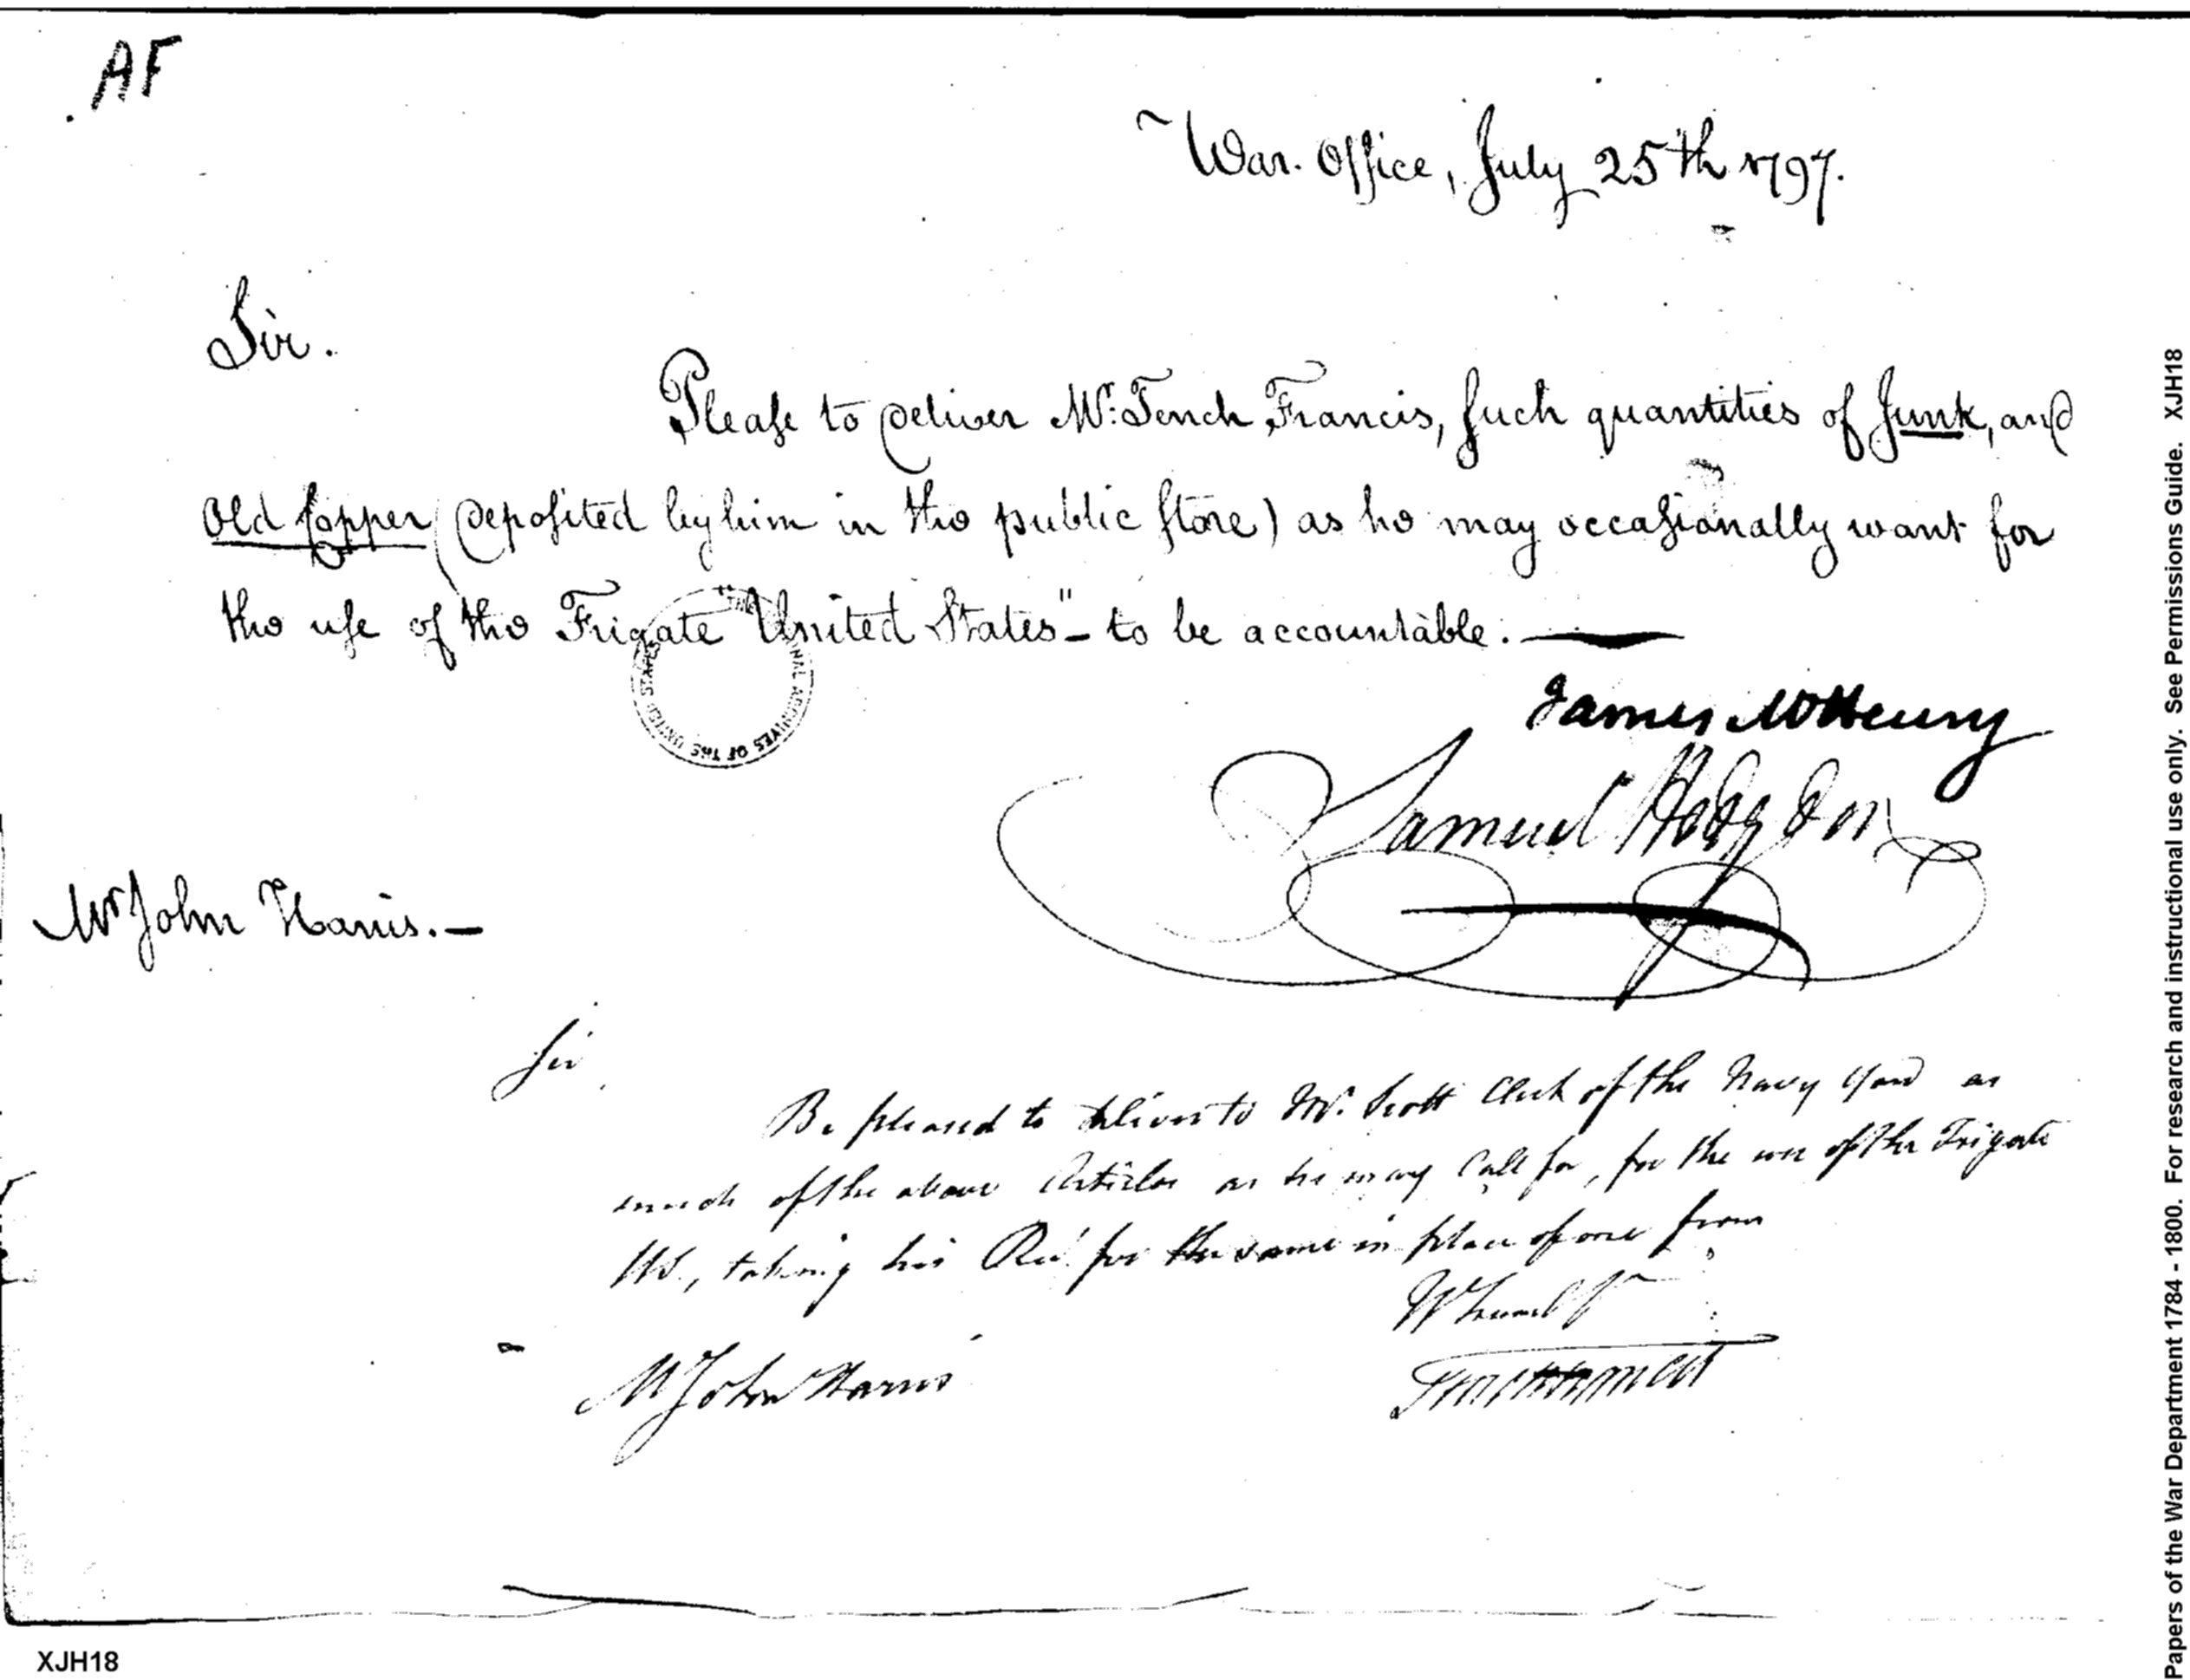 AF
War. Office, July 25th 1797.
Sir.
Please to deliver Mr. Tench Francis, such quantities of Junk, and
Old Copper (deposited by him in the public store) as he may occasionally want for
the use of the Frigate "United States" - to be accountable. —
James McHenry
Samuel Hodgdon
Mr John Harris. —
Sir
Be pleased to deliver to Mr. Scott Clerk of the Navy Yard as
much of the above Articles as he may Call for, for the use of the Frigate
US., taking his Rect. for the same in place of one from
Mr John Harris
THE NATIONAL ARCHIVES OF THE UNITED STATES
XJH18
Papers of the War Department 1784 - 1800. For research and instructional use only. See Permissions Guide. XJH18